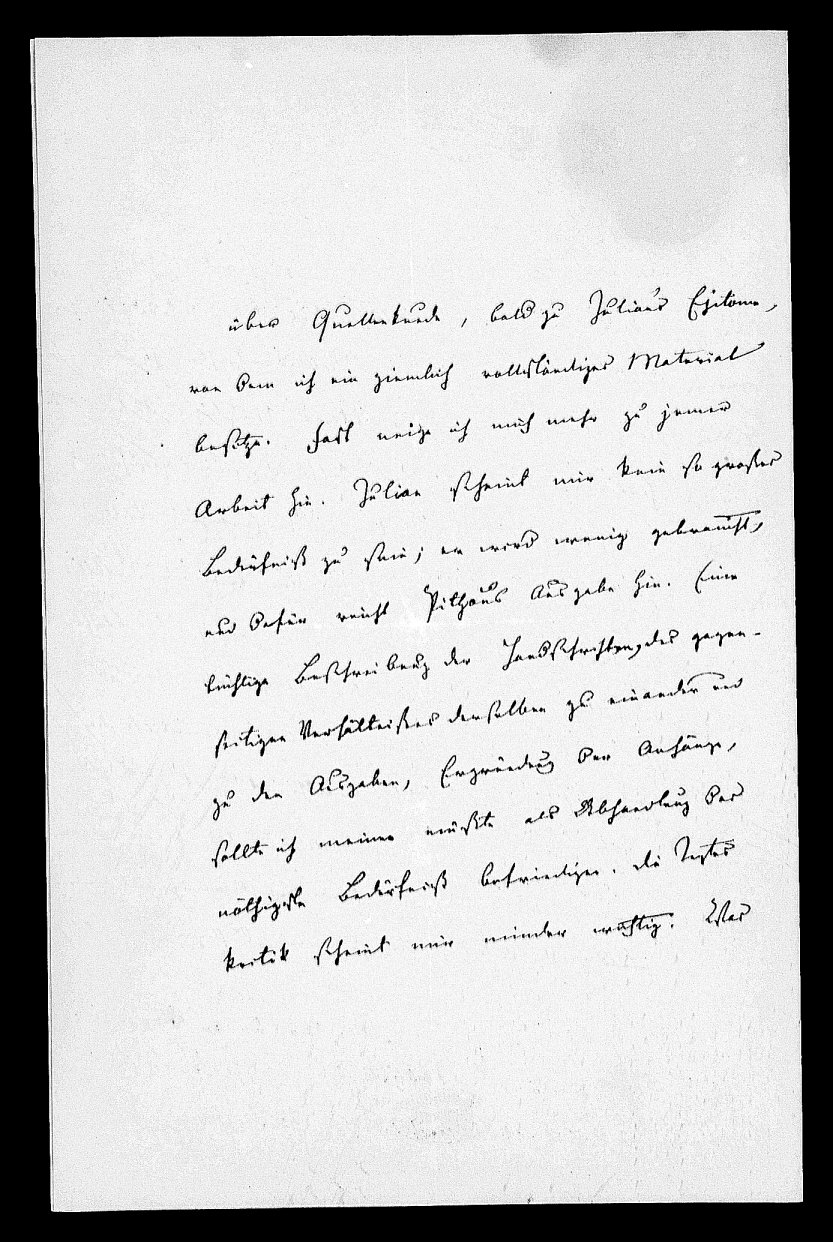 über Quellenkunde, bald zu Julians Epitome,
von dem ich ein ziemlich vollständiges Material
besitze. Fast neige ich mich mehr zu jener
Arbeit hin. Julian scheint mir kein so großes
Bedürfniß zu sein; er wird wenig gebraucht,
und dafür reicht Pithöus Ausgabe hin. Eine
tüchtige Beschreibung der Handschriften, des gegen-
seitigen Verhältnisses derselben zu einander und
zu den Ausgaben, Ergründung der Anhänge,
sollte ich meinen müßte als Abhandlung das
nöthigste Bedürfniß befriedigen. Die Textes
kritik scheint mir minder wichtig. Was